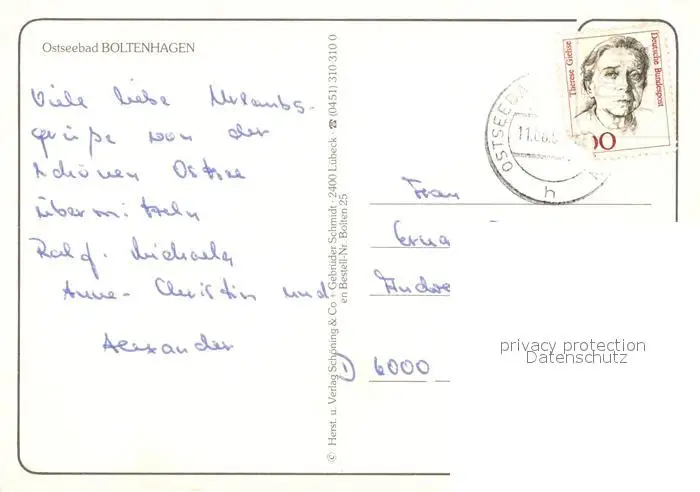 Ostseebad BOLTENHAGEN
Viele liebe Urlaubs-
grüße von der
schönen Ostsee
übermitteln
Ralf, Michaela
Anne-Christin und
Alexander
© Herst. u. Verlag Schöning & Co + Gebrüder Schmidt · 2400 Lübeck · ☎ (0451) 310 310 0
en Bestell-Nr. Bolten 25
Therese Giehse
Deutsche Bundespost
OSTSEEBA
11.06.
h
Frau
Erna
Andre
6000
privacy protection
Datenschutz